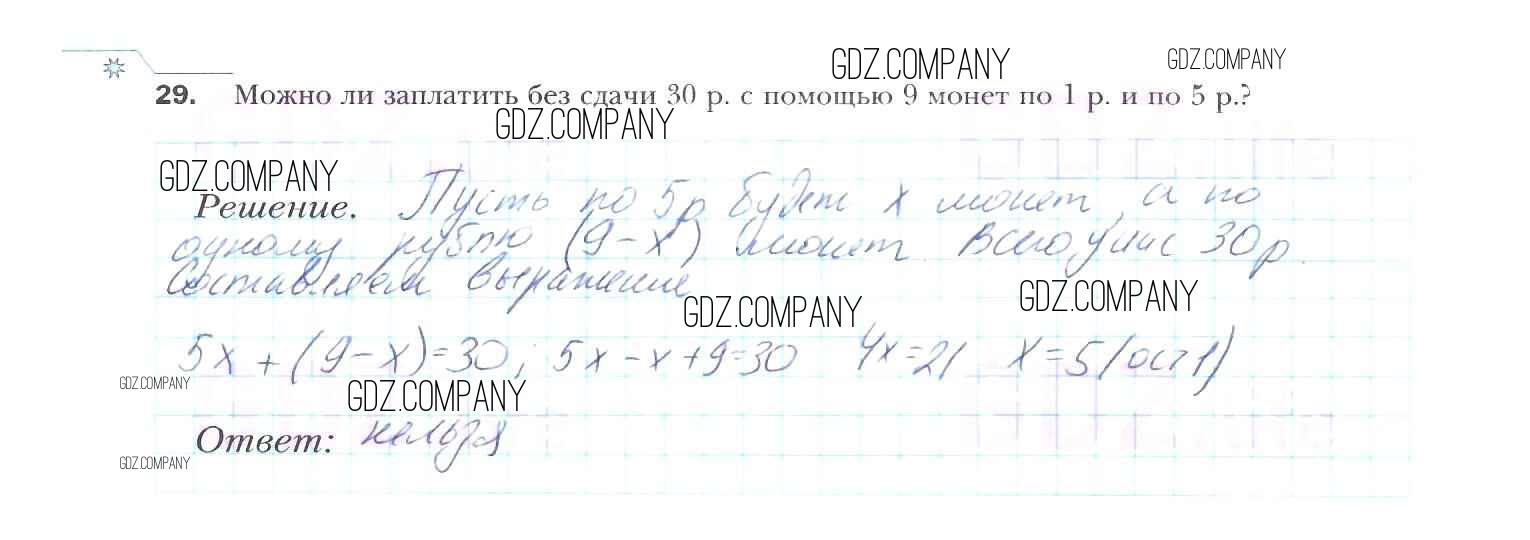 GDZ.COMPANY GDZ.COMPANY
29. Можно ли заплатить без сдачи 30 р. с помощью 9 монет по 1 р. и по 5 р.?
GDZ.COMPANY
GDZ.COMPANY
Решение. Пусть по 5р будет x монет, а по
одному рублю (9-x) монет. Всего у нас 30р.
Составляем выражение
GDZ.COMPANY GDZ.COMPANY
5x + (9-x)=30; 5x-x+9=30 4x=21 x=5(ост1)
GDZ.COMPANY GDZ.COMPANY
Ответ: нельзя
GDZ.COMPANY